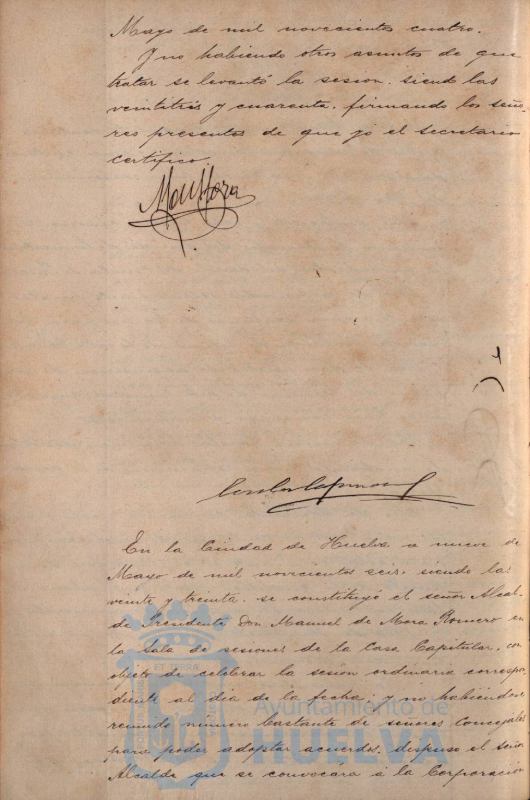 Mayo de mil novecientos cuatro.
Y no habiendo otros asuntos de que
tratar se levantó la sesion, siendo las
veintitrés y cuarenta, firmando los seño-
res presentes de que yo el secretario
certifico.
En la Ciudad de Huelva a nueve de
Mayo de mil novecientos seis, siendo las
veinte y treinta, se constituyó el señor Alcal-
de Presidente Don Manuel de Mora Romero en
la sala de sesiones de la Casa Capitular, con
objeto de celebrar la sesión ordinaria correspon
diente al día de la fecha; y no habiéndose
reunido número bastante de señores Concejales
para poder adoptar acuerdos, dispuso el señor
Alcalde que se convocára á la Corporación
Ayuntamiento de
HUELVA